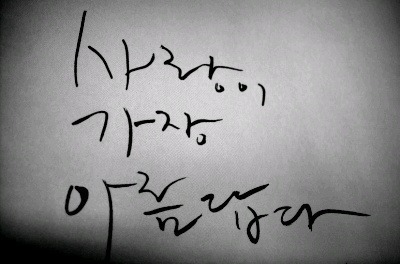 사랑이
가장
아름답다